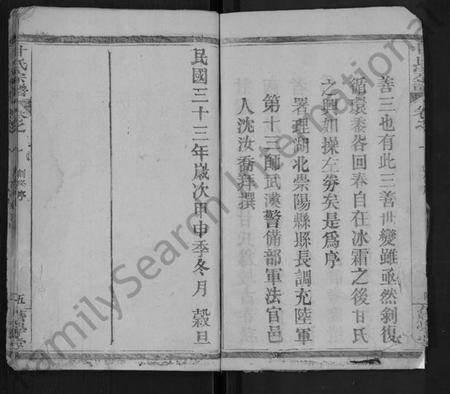 善三也有此三善世變雖亟然剝復
循環黍谷回春自在冰霜之後甘氏
之興如操左券矣是爲序
署理湖北崇陽縣縣長調充陸軍
第十三師武漢警備部軍法官邑
人沈汝喬拜撰
民國三十三年歲次甲申季冬月 穀旦
甘氏宗譜
卷之一
序
五
FamilySearch International